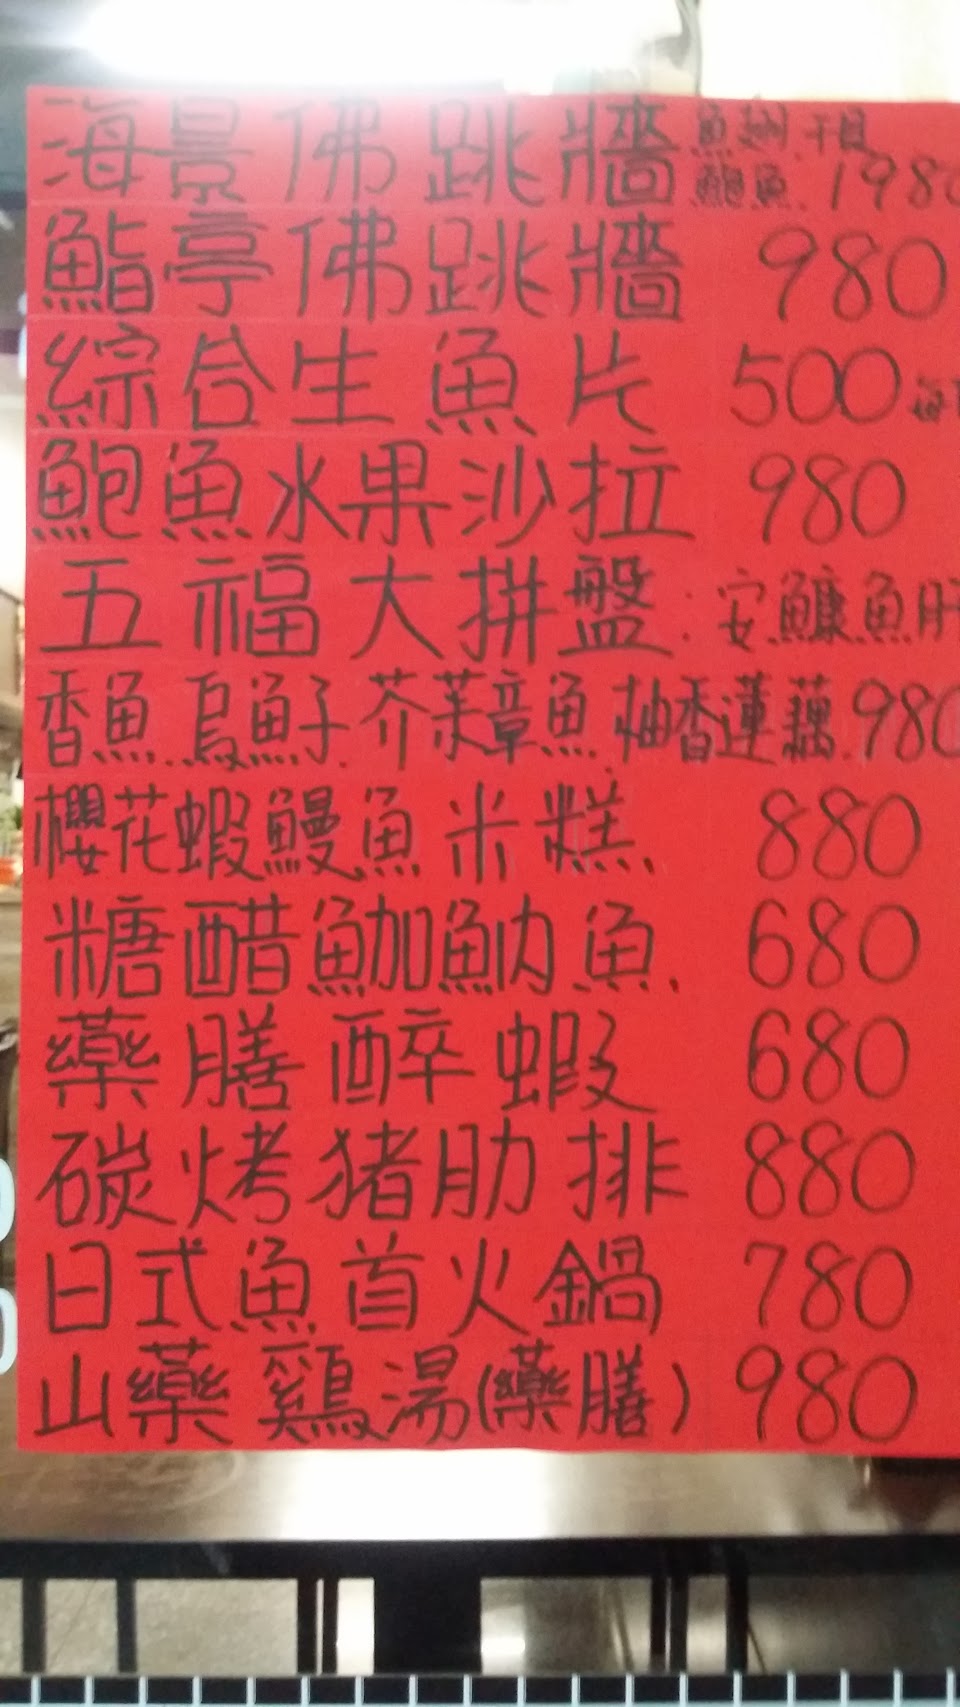 海景佛跳牆 魚翅.干貝
鮑魚.1980
鮨亭佛跳牆 980
綜合生魚片 500 每
鮑魚水果沙拉 980
五福大拼盤:安鱇魚肝
香魚.烏魚子.芥茉章魚.柚香蓮藕.980
櫻花蝦鰻魚米糕. 880
糖醋魚加魶魚. 680
藥膳醉蝦 680
碳烤猪肋排 880
日式魚首火鍋 780
山藥鷄湯(藥膳) 980